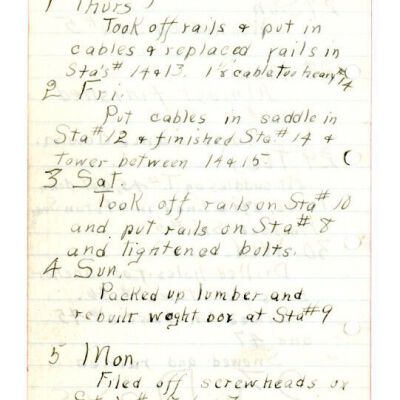 1 Thurs
Took off rails & put in
cables & replaced rails in
Sta's # 14 & 13. 1's cable too heavy #14
2 Fri.
Put cables in saddle in
Sta # 12 & finished Sta. # 14 &
tower between 14 & 15.
3 Sat
Took off rails on Sta # 10
and put rails on Sta # 8
and tightened bolts.
4 Sun.
Packed up lumber and
rebuilt weght box at Sta # 9
5 Mon.
Filed off screwheads on